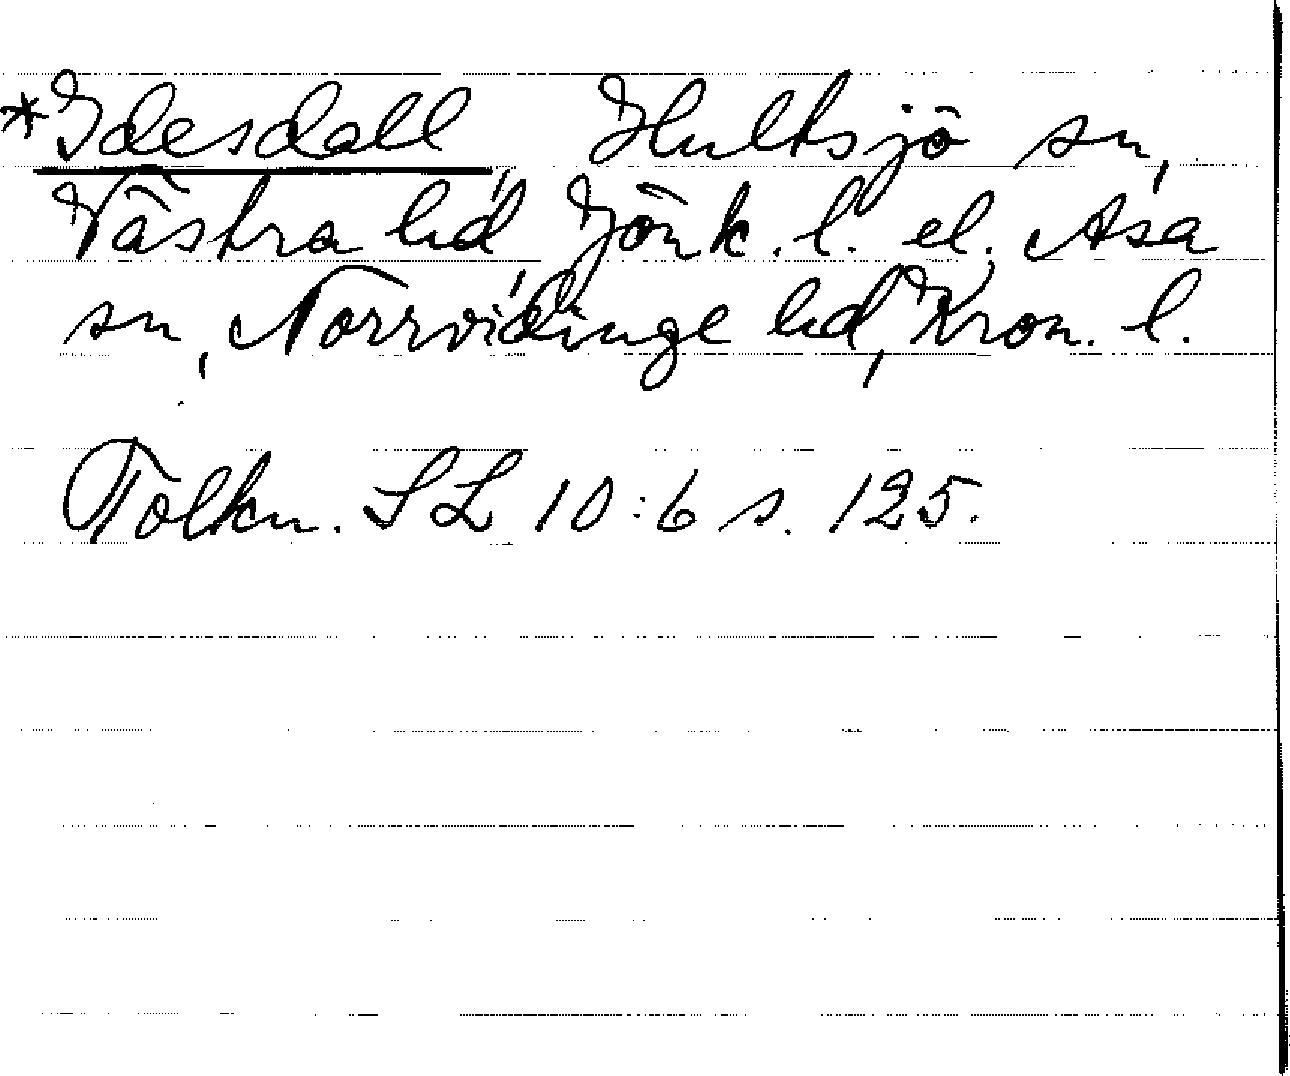 *Idesdall, Hultsjö sn,
Västra hd, Jönk. l. el. Asa
sn, Norrvidinge hd, Kron. l.
Tolkn. SL 10:6 s. 125.